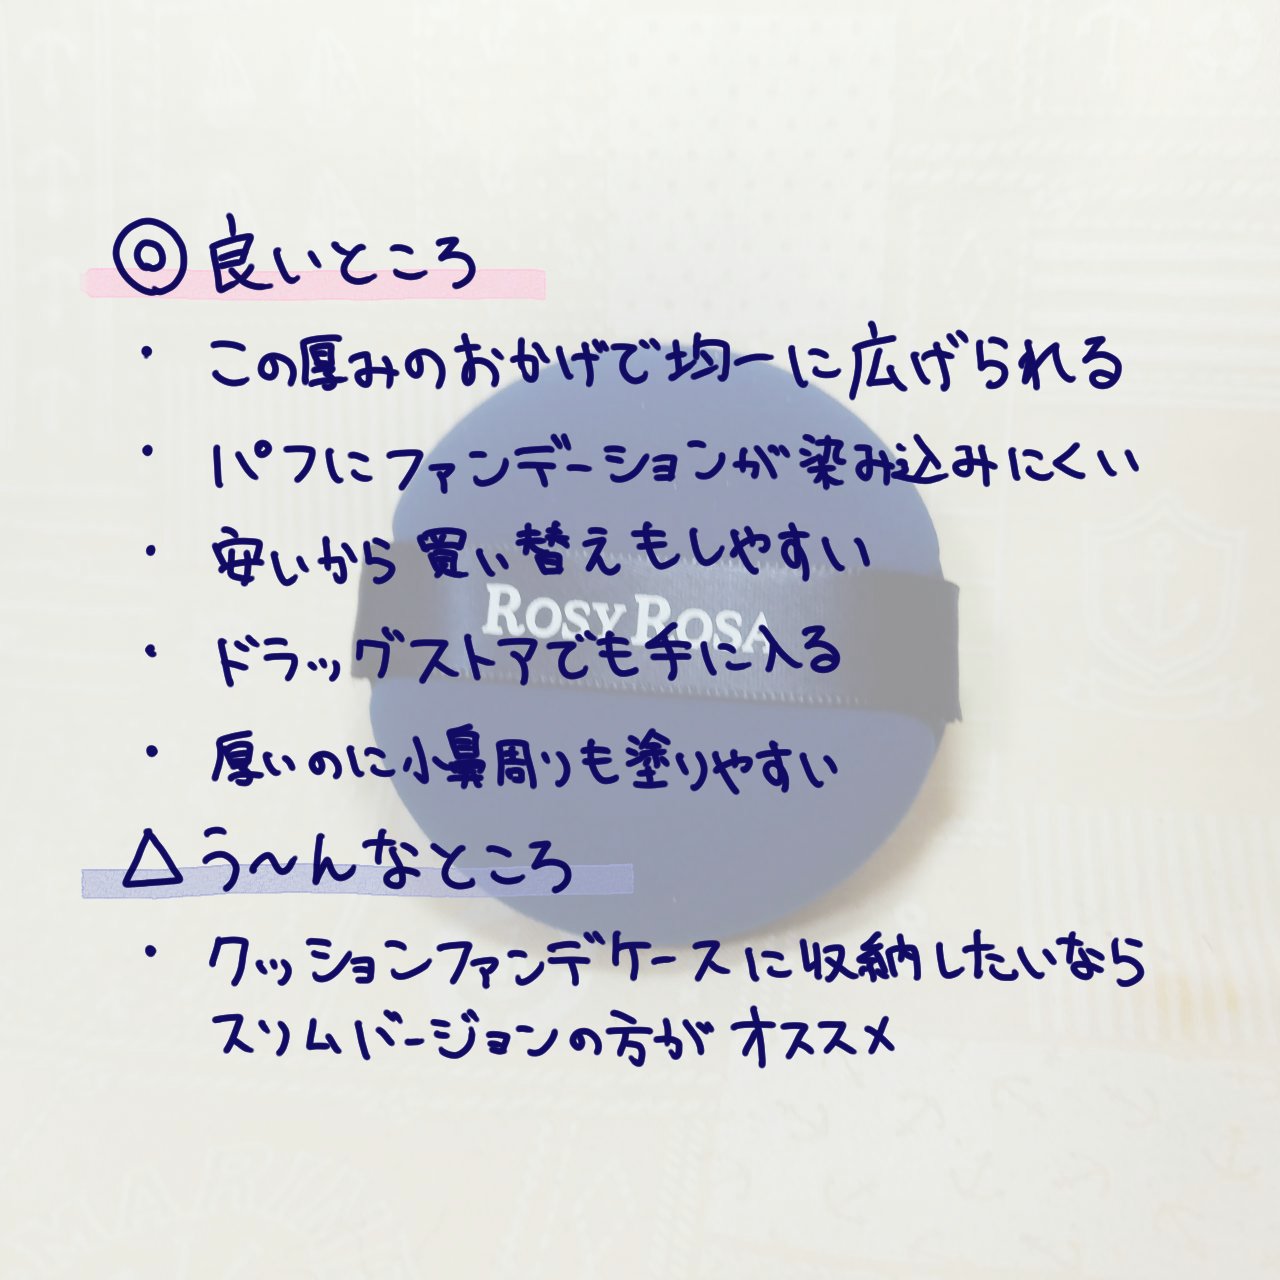 ◎良いところ
・この厚みのおかげで均一に広げられる
・パフにファンデーションが染み込みにくい
・安いから買い替えもしやすい
ROSY ROSA
・ドラッグストアでも手に入る
・厚いのに小鼻周りも塗りやすい
△う〜んなところ
・クッションファンデケースに収納したいなら
スリムバージョンの方がオススメ